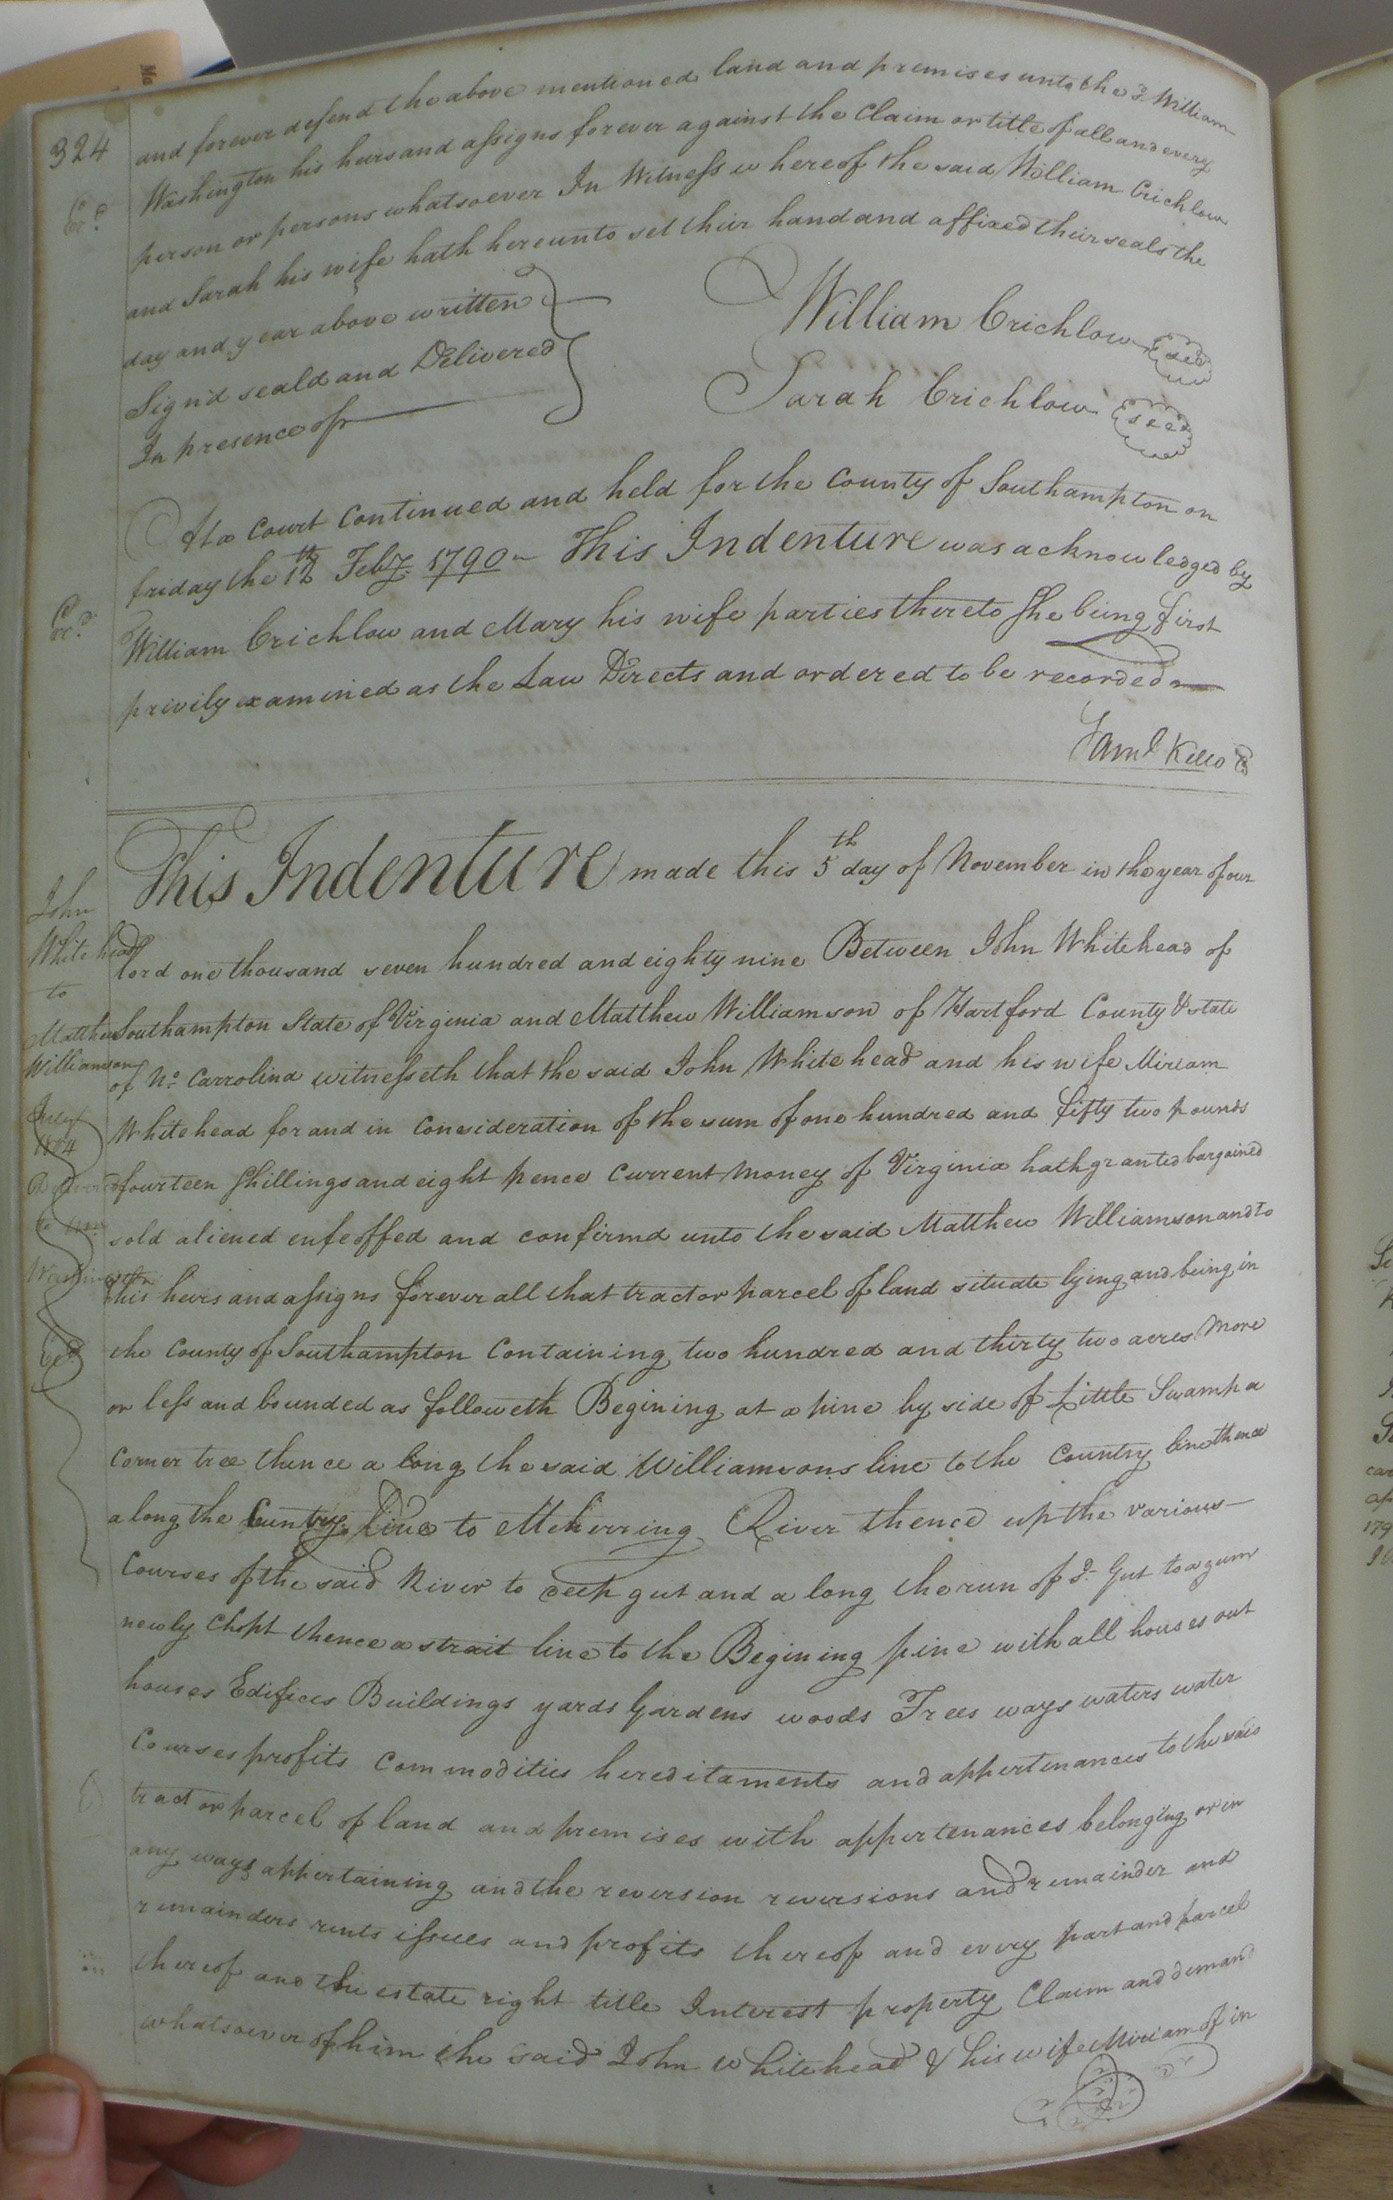 324
and forever defend the above mentioned land and premises unto the sd. William
Washington his heirs and assigns forever against the Claim or title of all and every
person or persons whatsoever In Witness whereof the said William Crichlow
and Sarah his wife hath hereunto set their hand and affixed their seals the
day and year above written
Sign'd seald and Delivered
In presence of
William Crichlow
Sarah Crichlow
At a Court Continued and held for the County of Southampton on
friday the 12th Feby. 1790 This Indenture was acknowledged by
William Crichlow and Mary his wife parties thereto She being first
privily examined as the Law Directs and ordered to be recorded
Saml Kello
This Indenture made this 5th day of November in the year of our
lord one thousand seven hundred and eighty nine Between John Whitehead of
Southampton State of Virginia and Matthew Williamson of Hartford County & state
of No. Carrolina witnesseth that the said John Whitehead and his wife Miriam
Whitehead for and in Consideration of the sum of one hundred and fifty two pounds
fourteen Shillings and eight pence Current Money of Virginia hath granted bargained
sold aliened enfeoffed and confirmd unto the said Matthew Williamson and to
his heirs and assigns forever all that tract or parcel of land situate lying and being in
the County of Southampton Containing two hundred and thirty two acres More
or less and bounded as followeth Begining at a pine by side of Little Swamp a
Corner tree thence a long the said Williamsons line to the Country line thence
along the Cuntry line to Meherring River thence up the various
Courses of the said River to deep gut and a long the run of sd. Gut to a gum
newly Chopt thence a strait line to the Begining pine with all houses out
houses Edifices Buildings yards Gardens woods Trees ways waters water
Courses profits Commodities hereditaments and appertenances to the said
tract or parcel of land and premises with appertenances belonging or in
any ways appertaining and the reversion reversions and remainder and
remainders rents issues and profits thereof and every part and parcel
thereof and the estate right title Interest property Claim and demand
whatsoever of him the said John Whitehead & his wife Miriam of in
John
Whitehead
to
Matthew
Williamson